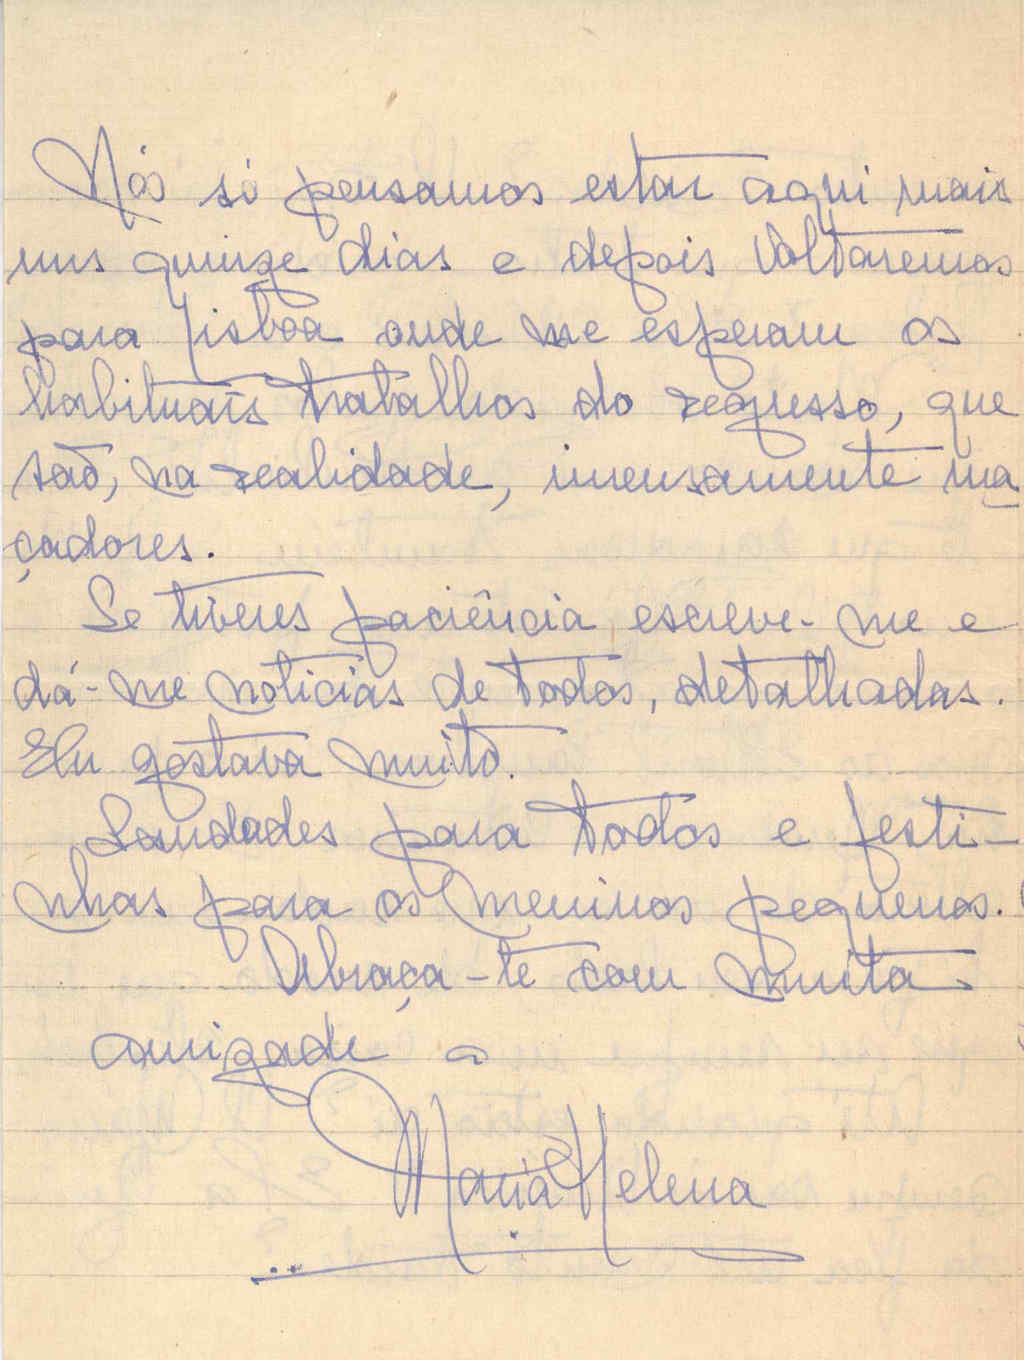 Nós só pensamos estar aqui mais
uns quinze dias e depois voltaremos
para Lisboa onde me esperam os
habituais trabalhos do regresso, que
são, na realidade, imensamente ma
çadores.
Se tiveres paciência escreve-me e
dá-me noticias de todos, detalhadas.
Eu gostava muito.
Saudades para todos e festi-
nhas para os meninos pequenos.
Abraça-te com muita
amizade a
Maria Helena